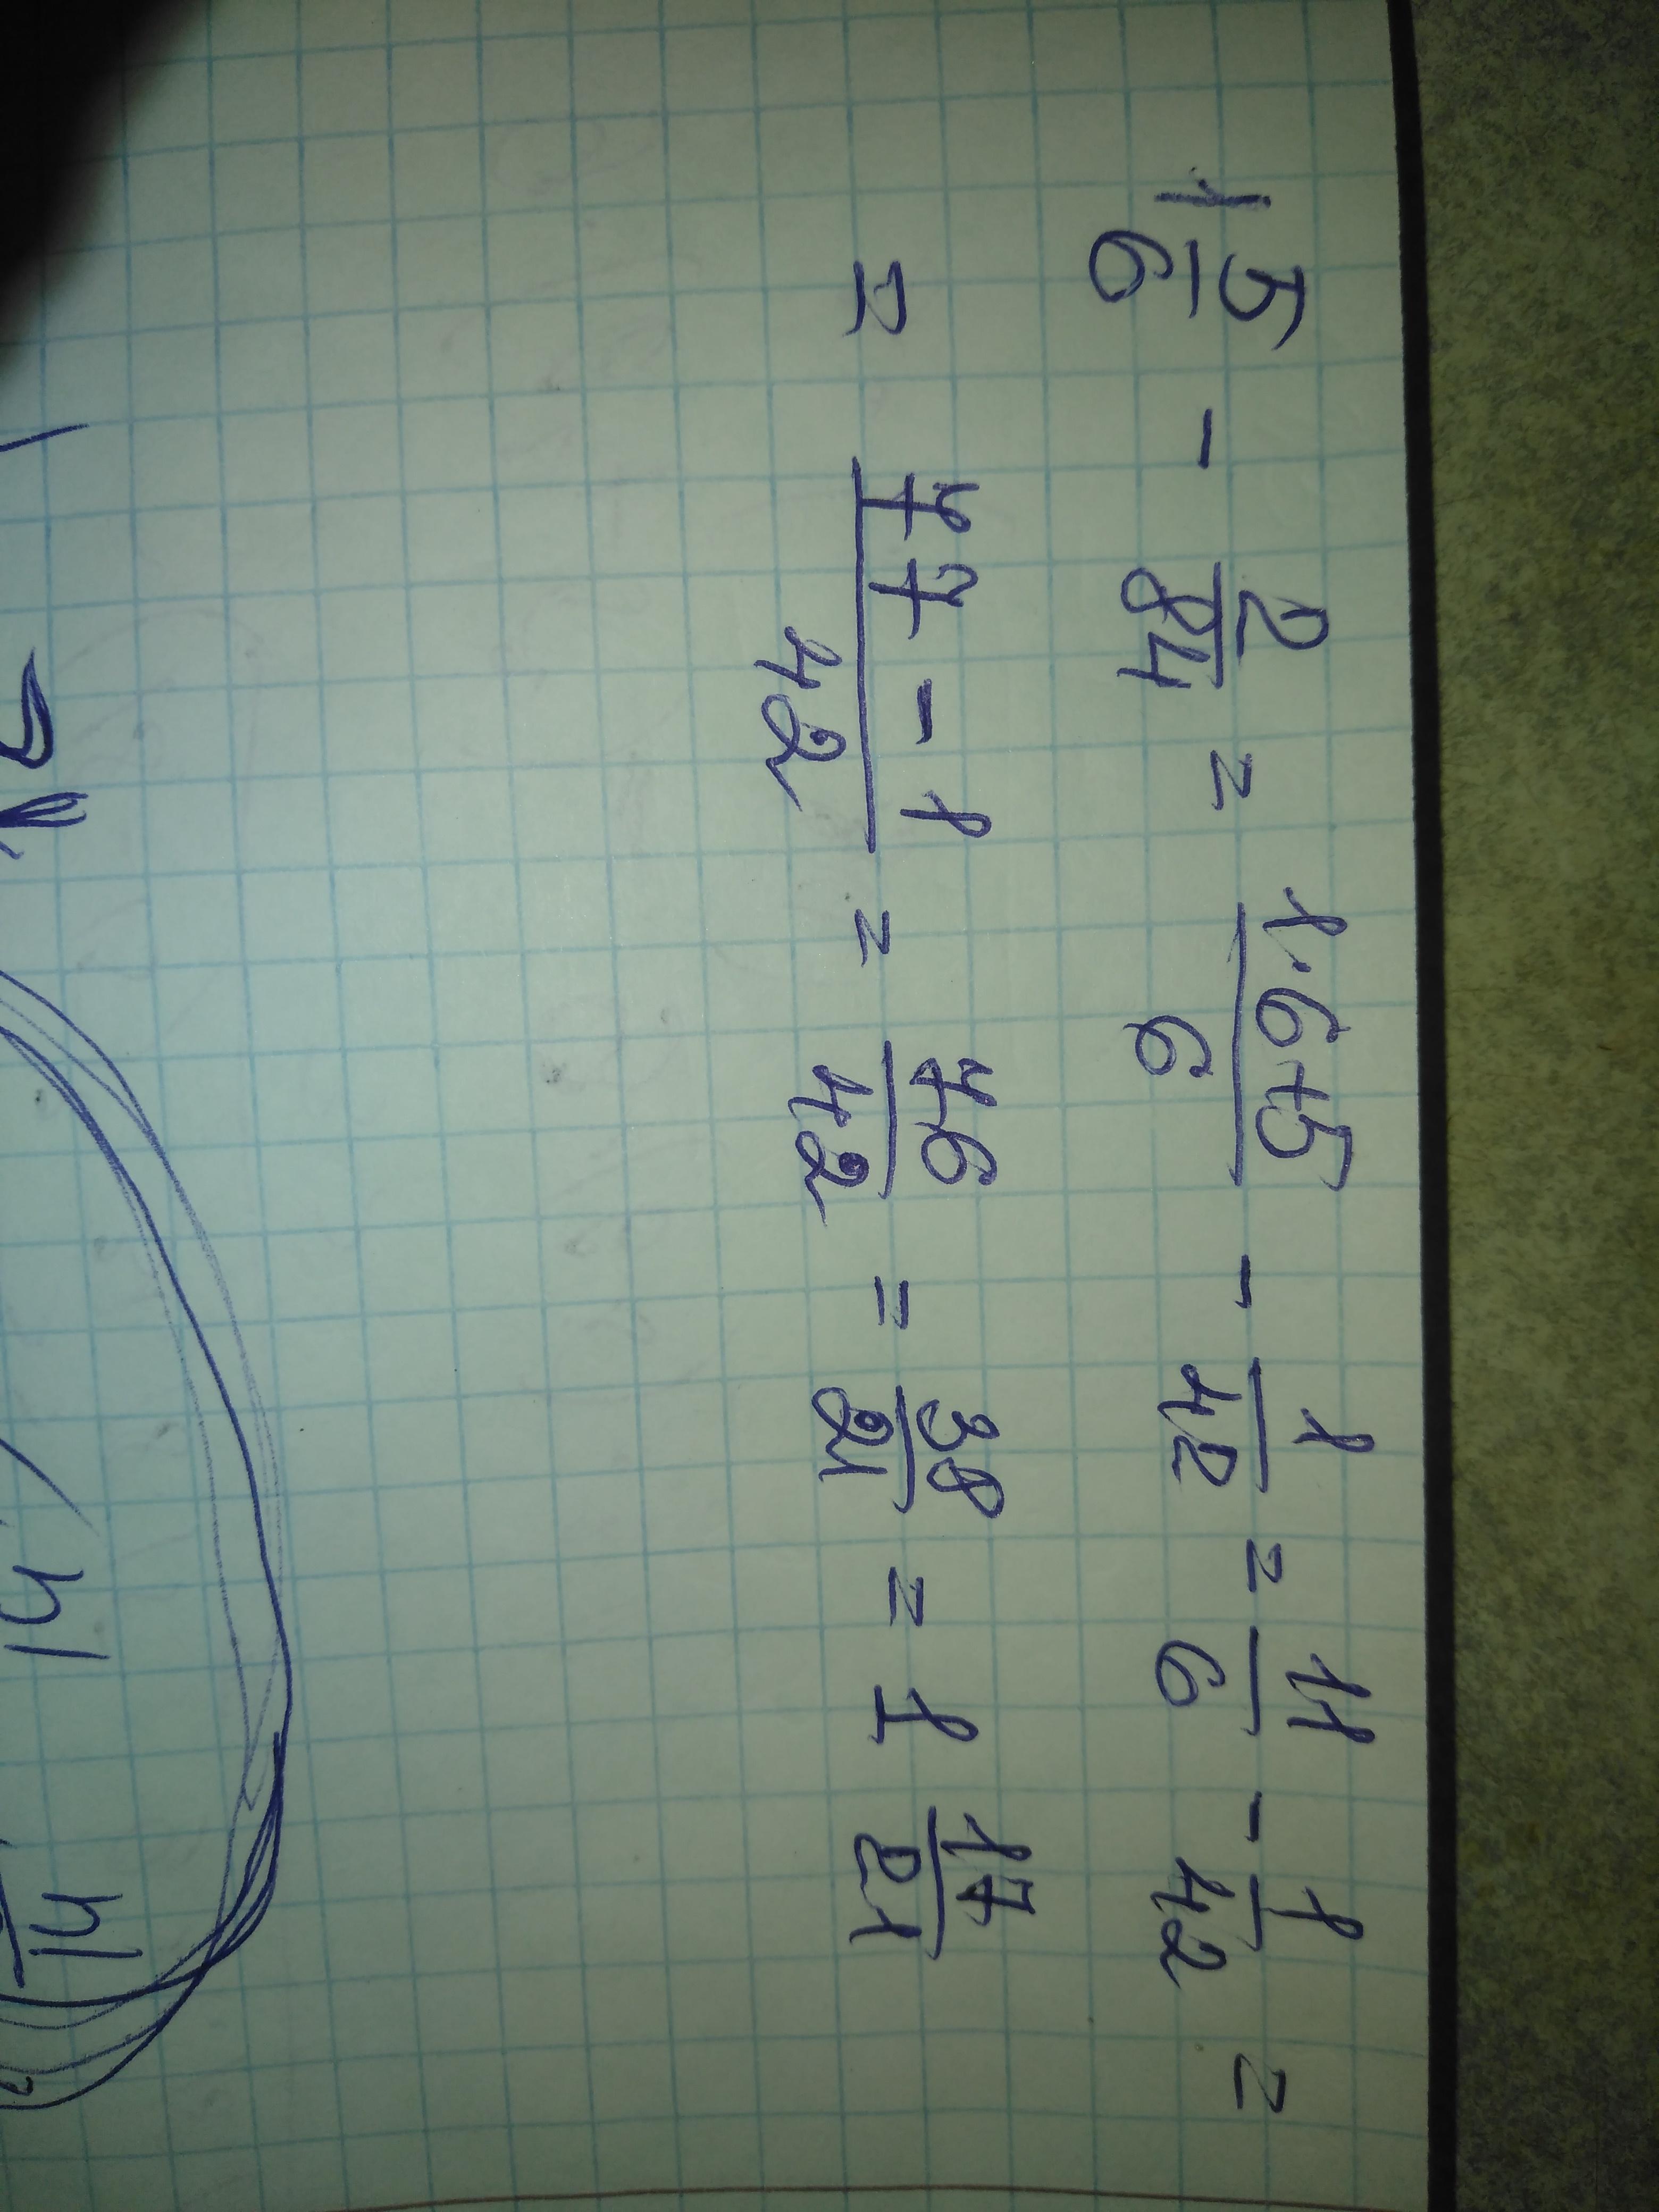 1 5/6 - 2/84 = 1·6+5/6 - 1/42 = 11/6 - 1/42 =
= 77-1/42 = 76/42 = 38/21 = 1 17/21
14
14